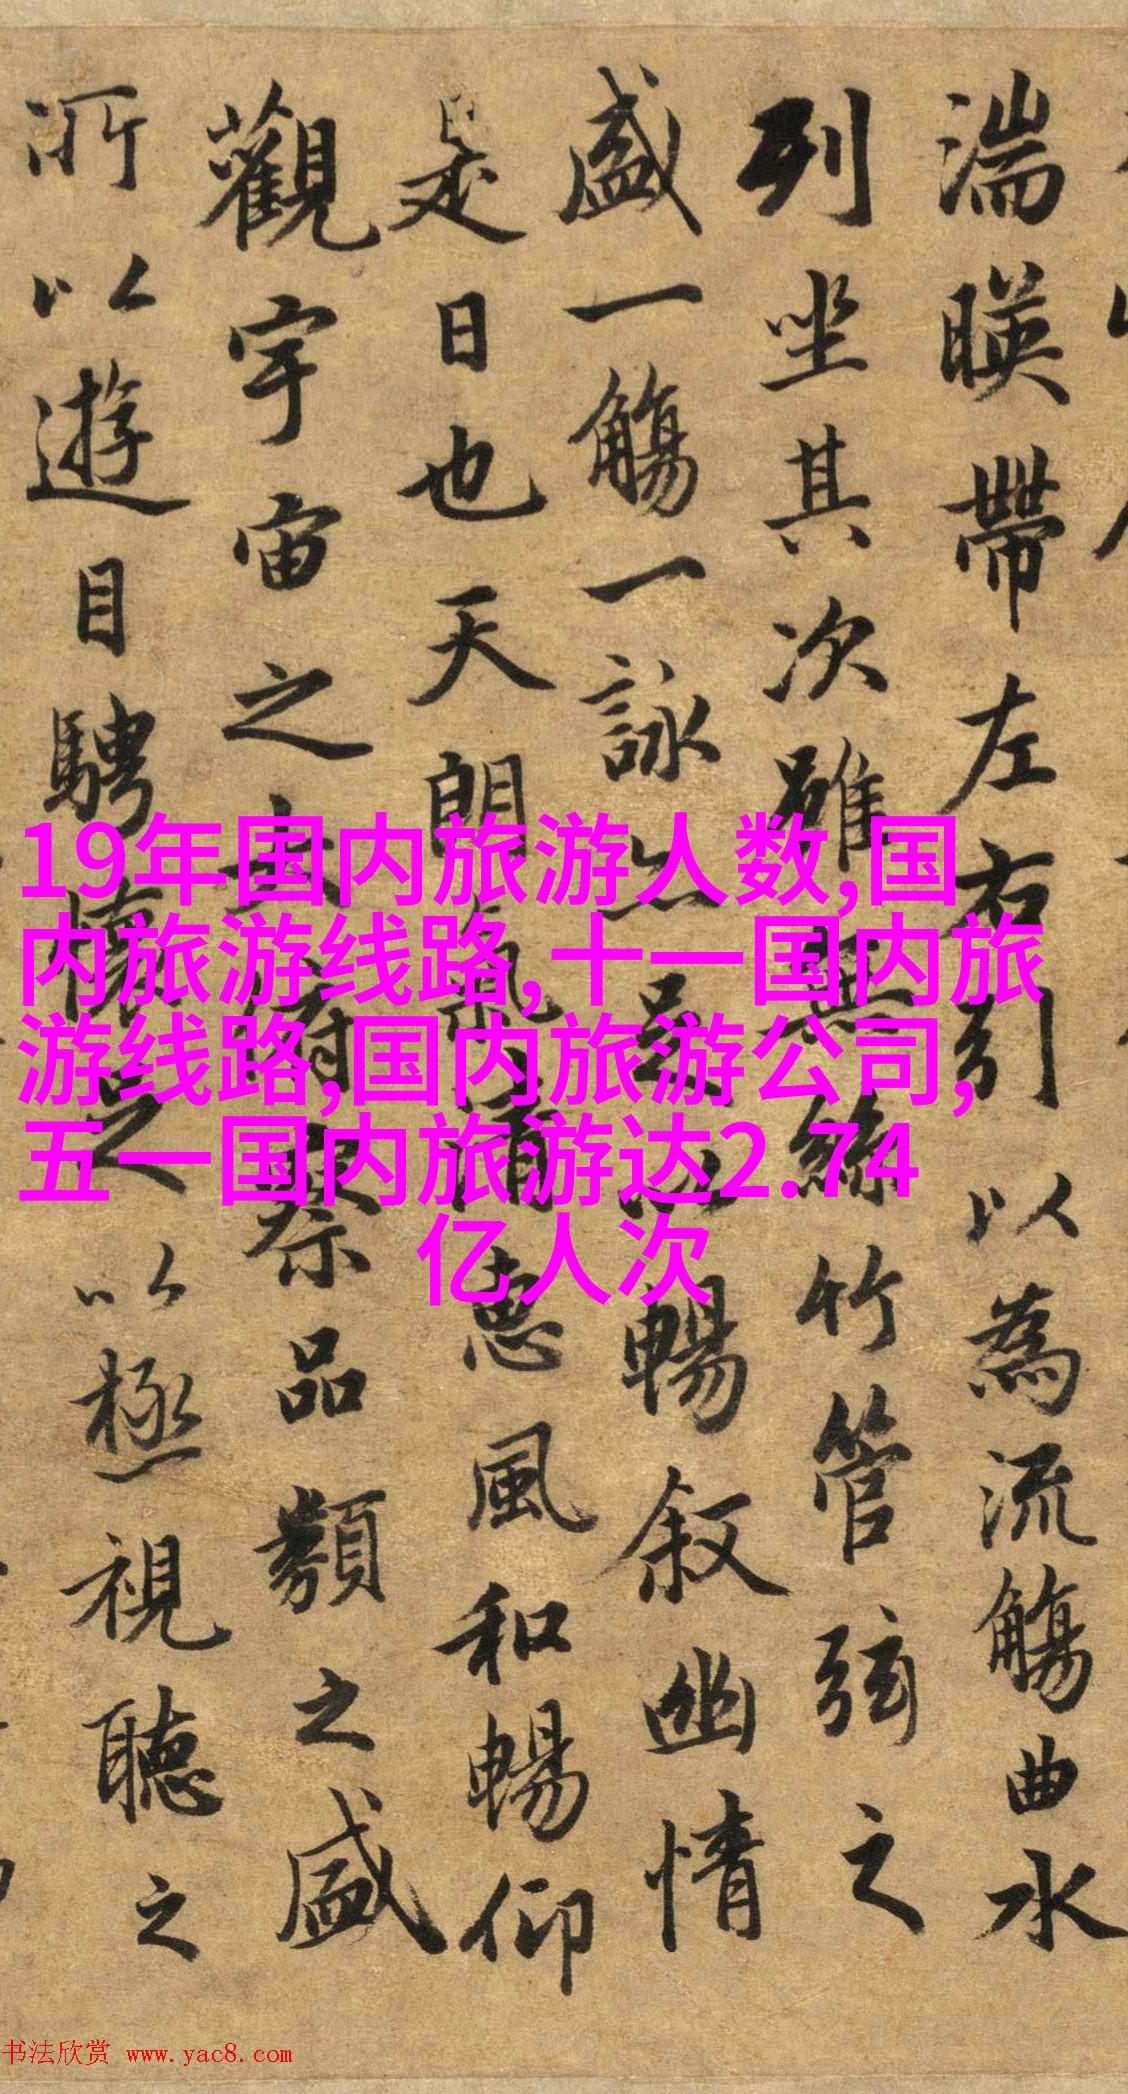 湍暎帶左右引以為流觴曲水
列坐其次雖無絲竹管弦之
盛一觴一詠亦足以暢叙幽情
是日也天朗氣清惠風和暢仰
觀宇宙之大俯察品類之盛
所以遊目騁懷足以極視聽之
19年国内旅游人数,国
内旅游线路,十一国内旅
游线路,国内旅游公司,
五一国内旅游达2.74
亿人次
书法欣赏 www.yac8.com